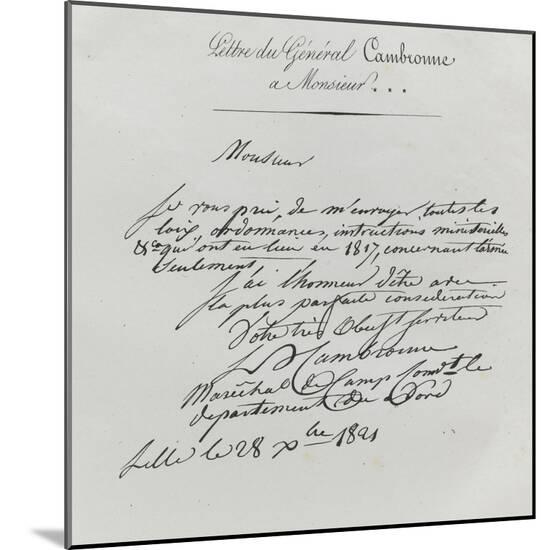 Lettre du Général Cambronne
a Monsieur...
Monsieur
Je vous prie, de m'envoyer, toutes les
loix, ordonnances, instructions ministerielles
&ca qui ont eu lieu en 1817, concernant l'armée
Seulement
J'ai l'honneur d'être avec
la plus parfaite consideration
Votre très Obest Serviteur
Cambronne
Maréchal de Camp Comdt le
departement du Nord
Lille le 28 Xbre 1821